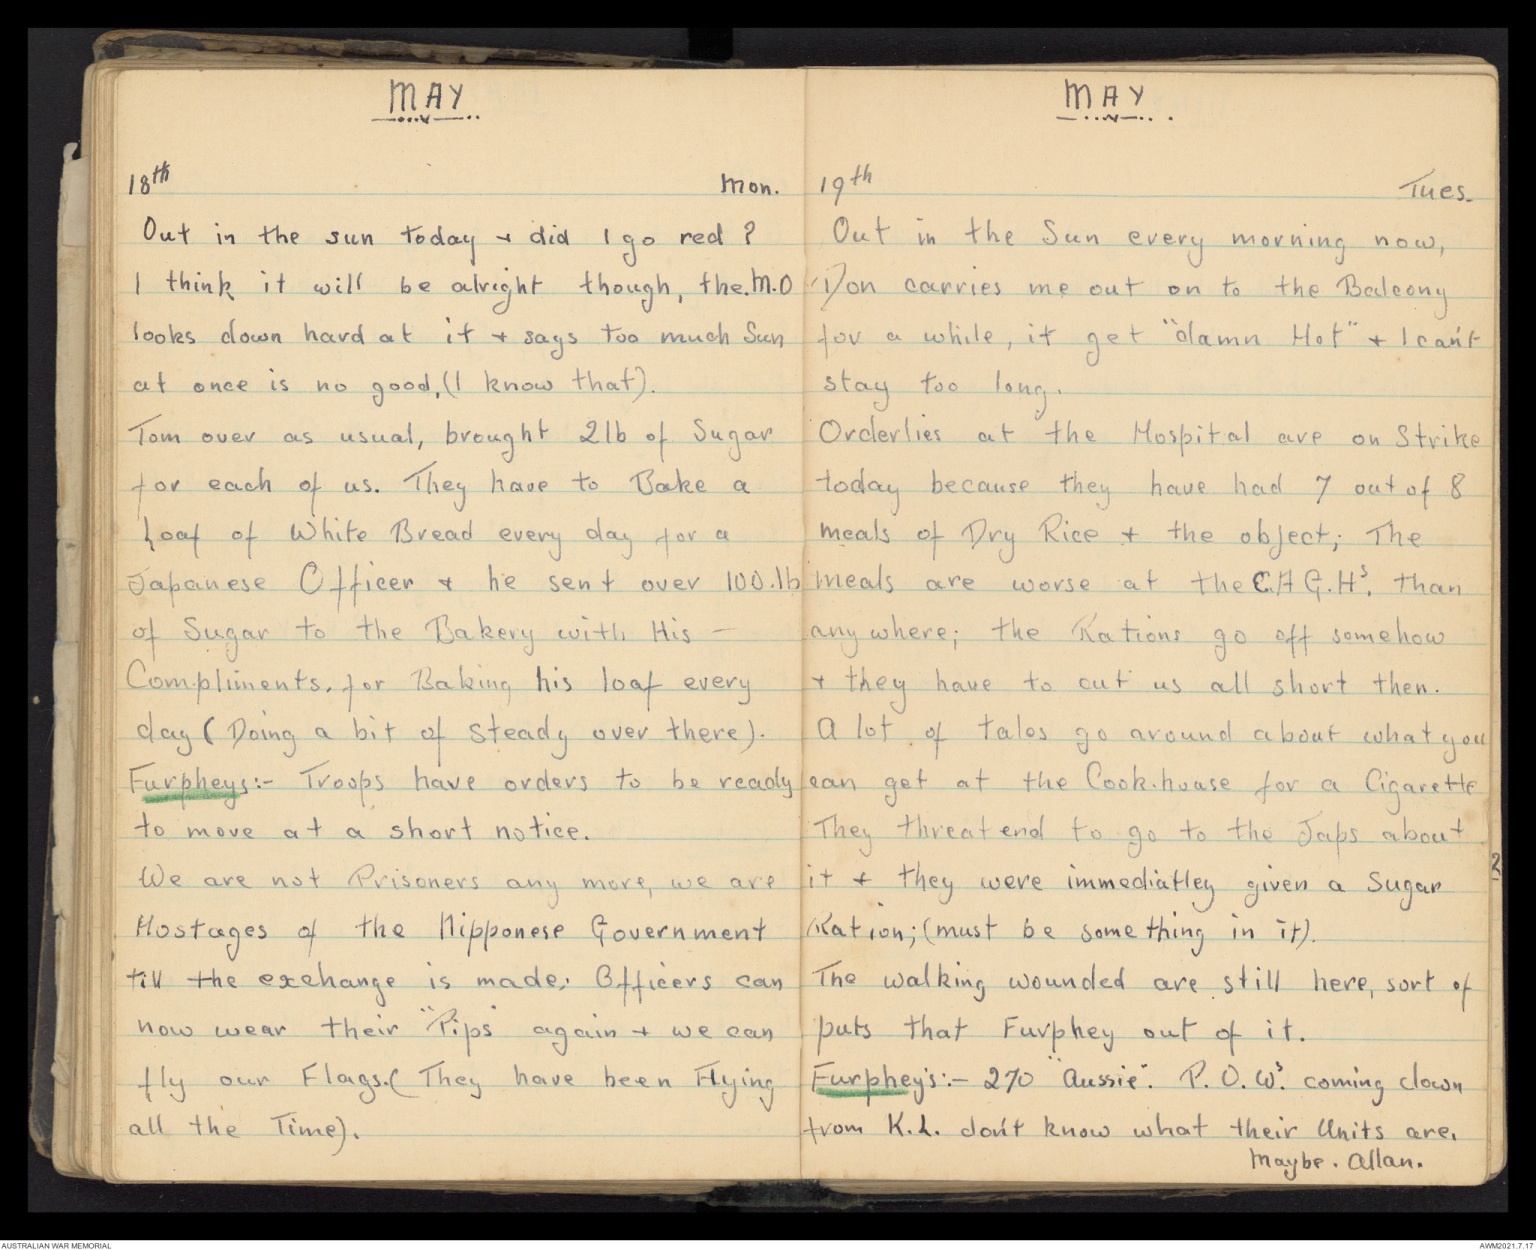 MAY
18th Mon.
Out in the sun today + did I go red ?
I think it will be alright though, the M.O
looks down hard at it + says too much Sun
at once is no good, (I know that).
Tom over as usual, brought 2lb of Sugar
for each of us. They have to Bake a
Loaf of White Bread every day for a
Japanese Officer + he sent over 100.lb
of Sugar to the Bakery with His —
Compliments, for Baking his loaf every
day ( Doing a bit of steady over there).
Furpheys:- Troops have orders to be ready
to move at a short notice.
We are not Prisoners any more, we are
Hostages of the Nipponese Government
till the exchange is made; Officers can
now wear their "Pips" again + we can
fly our Flags.( They have been Flying
all the Time).
MAY
19th Tues.
Out in the Sun every morning now,
Don carries me out on to the Balcony
for a while, it get "damn Hot" + I can't
stay too long.
Orderlies at the Hospital are on Strike
today because they have had 7 out of 8
meals of Dry Rice + the object; The
meals are worse at the C.A.G.H's. than
any where; the Rations go off somehow
+ they have to cut us all short then.
A lot of tales go around about what you
can get at the Cook.house for a Cigarette
They threatend to go to the Japs about
it + they were immediatley given a Sugar
Ration; (must be something in it).
The walking wounded are still here, sort of
puts that Furphey out of it.
Furphey's:- 270 "Aussie". P.O.W's. coming down
from K.L. don't know what their Units are.
Maybe. Allan.
2
AUSTRALIAN WAR MEMORIAL
AWM2021.7.17